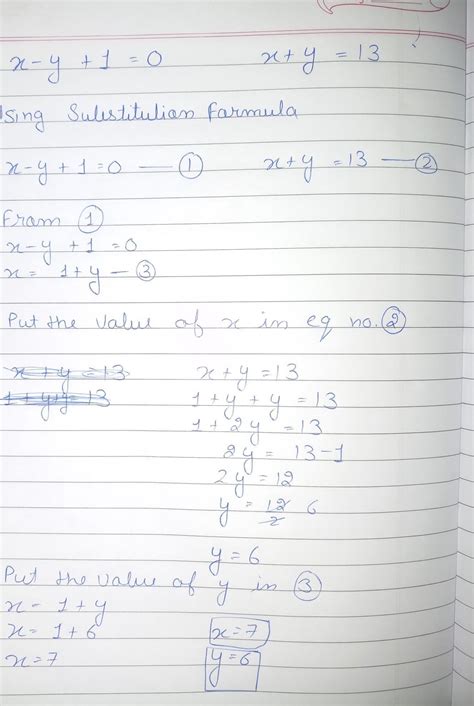 x - y + 1 = 0    x + y = 13
Using Substitution farmula
x - y + 1 = 0 — ①    x + y = 13 — ②
From ①
x - y + 1 = 0
x = 1 + y — ③
Put the value of x in eq no. ②
x + y = 13    x + y = 13
1 + y + y = 13    1 + y + y = 13
1 + 2y = 13
2y = 13 - 1
2y = 12
y = 12/2 6
y = 6
Put the value of y in ③
x - 1 + y
x = 1 + 6    x = 7
x = 7    y = 6